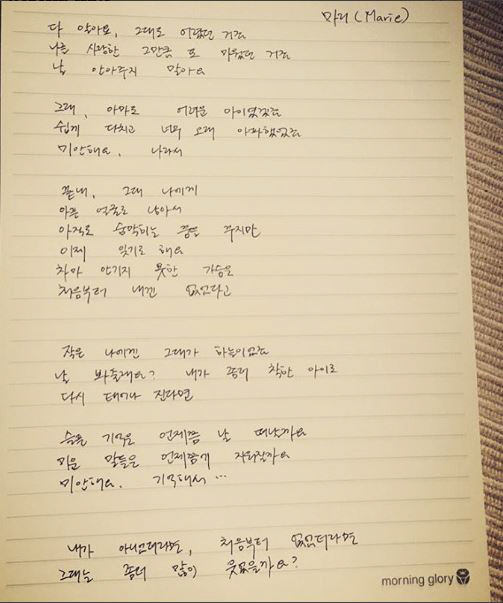 마리 (Marie)
다 알아요, 그대도 어렸던 거죠
나를 사랑한 그만큼 또 미웠던 거죠
날 안아주지 말아요
그래, 아마도 어려운 아이였겠죠
쉽게 다치고 너무 오래 아파했었죠
미안해요. 나라서
끝내, 그대 나에게
아픈 얼굴로 남아서
아직도 숨막히는 꿈을 꾸지만
이제 잊기로 해요
차마 안기지 못한 가슴은
처음부터 내겐 없었다고
작은 나에겐 그대가 하늘이었죠
날 봐줄래요? 내가 좀더 착한 아이로
다시 태어나 진다면
슬픈 기억은 언제쯤 날 떠날까요
미운 말들은 언제쯤에 작아질까요
미안해요. 기억해서 ...
내가 아니었더라면, 처음부터 없었더라면
그대는 좀더 많이 웃었을까요?
morning glory